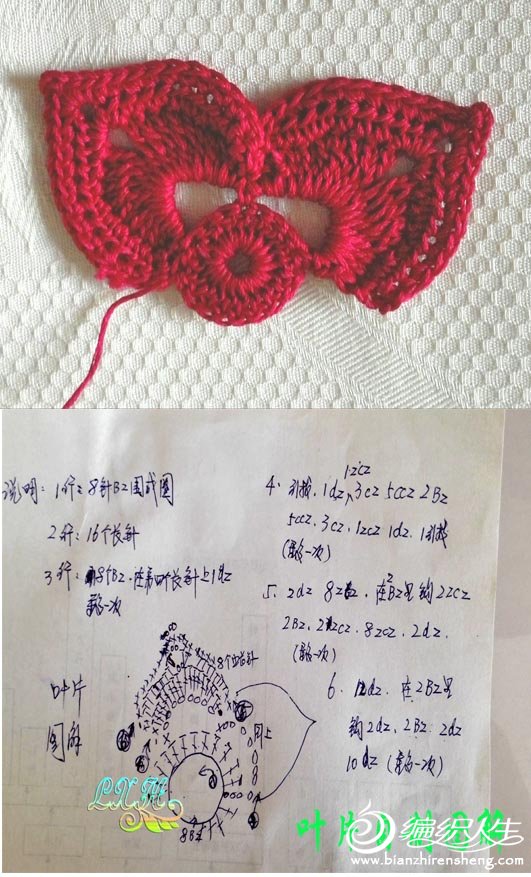 说明：1行：8针Bz围成圈
2行：16个长针
3行：8个Bz.在第四个长针上1dz
重复一次
4. 引拔，1dz，1zcz 3cz 5ccz 2Bz
5ccz. 3cz. 1zcz 1dz. 1引拔
(重复一次)
5. 2dz 8zcz. 在2Bz里钩2zcz
2Bz. 2zcz. 8zcz. 2dz.
(重复一次)
6. 10dz. 在2Bz里
钩2dz. 2Bz. 2dz
10dz (重复一次)
叶片
图解
8个
同上
8Bz
LXH
编织人生
www.bianzhirensheng.com